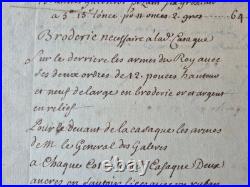 a 5ᵗ 15ˢ l'once pʳ 11 onces 2 gros 64
Broderie necessaire a lad. Casaque
Sur le derriere les armes du Roy avec
ses deux ordres de 12. pouces hauteur
et neuf de larges en broderie or et argent
en relief
Pour le devant de la casaque les armes
de M. le General des Galeres
a Chaque Costé de la Casaque Deux
ancres en Sautoir